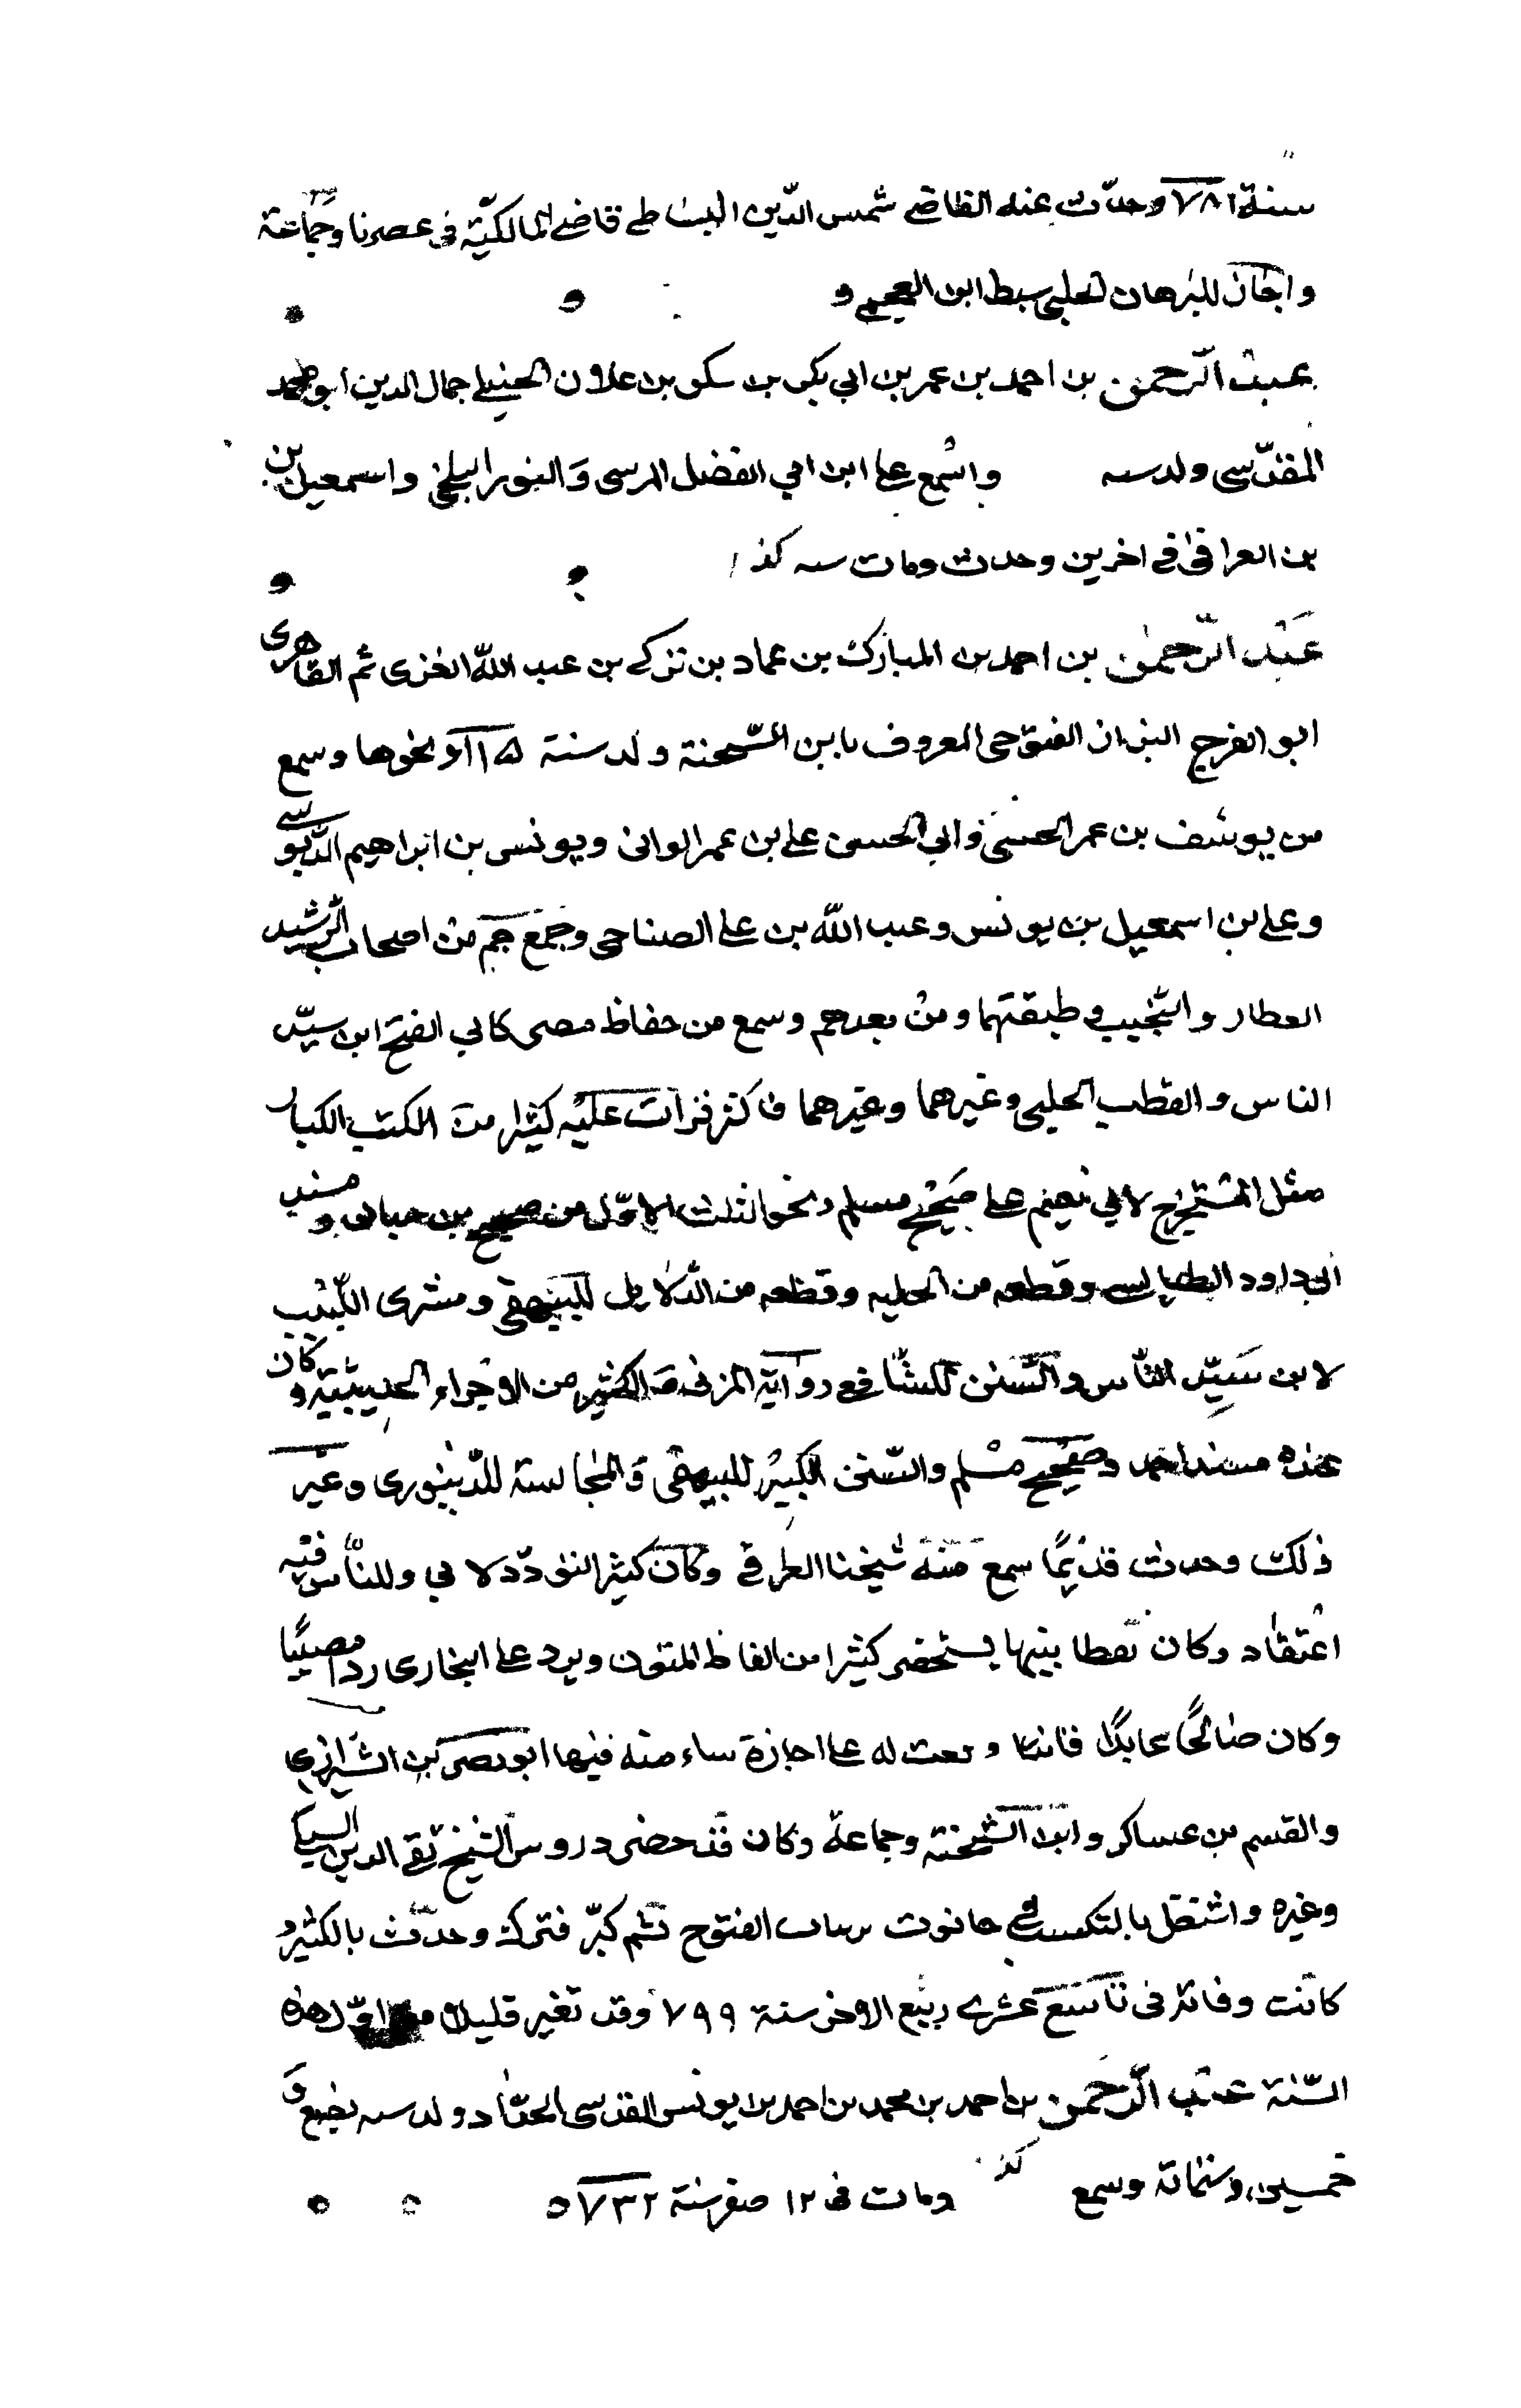 سنة ٧٨١ وحدّث عنه القاضي شمس الدّين البساطي قاضي المالكيّة في عصرنا وجماعة
واجاز للبرهان الحلبي سبط ابن العجمي و
عبد الرّحمن بن احمد بن عمر بن ابي بكر بن شكر بن علاون الحنبلي جمال الدين ابو محمد
المقدّسي ولد سنه واسمع على ابن ابي الفضل المرسى والنور البلخي واسمعيل بن
بن العراقي في اخرين وحدث ومات سنه كذا
عبد الرّحمن بن احمد بن المبارك بن حماد بن تركي بن عبد الله الغزى ثم القاهرى
ابو الفرج البزاز الفتوحى المعروف بابن الشّحنة ولد سنة ١٥ او نحوها وسمع
من يوسف بن عمر الختنى وابي الحسن علي بن عمر الوانى ويونس بن ابراهيم الدّبوسي
وعلي بن اسمعيل بن يونس وعبد الله بن علي الصناجى وجمع جم من اصحاب الرّشيد
العطار والنّجيب وطبقتهما ومن بعدهم وسمع من حفاظ مصر كابي الفتح ابن سيّد
الناس والقطب الحلبي وغيرهما وغيرهما فاكثر قرات عليه كثيرا من الكتب الكبار
مثل المستخرج لابي نعيم على صحيح مسلم ونحو الثلث الاوّل من صحيح بن حبان ومسند
ابى داود الطيالسي وقطعه من الحليه وقطعه من الدّلايل للبيهقي وبشرى اللّبيب
لابن سيّد النّاس والسّنن للشّافعي رواية المزنى والكثير من الاجزاء الحديثية وكان
عنده مسند احمد وصحيح مسلم والسّنن الكبير للبيهقى والمجالسة للدّينورى وغير
ذلك وحدث قديمًا سمع منه شيخنا العراقي وكان كثير التودّد لابي وللنّاس فيه
اعتقاد وكان يقظا نبيها يستحضر كثيرا من الفاظ المتون ويرد على البخارى ردا مصيبًا
وكان صالحًا عابدًا قانتا وقعت له على اجازة ساء منه فيها ابو نصر بن الشّيرازي
والقسم بن عساكر وابن الشّحنة وجماعة وكان قد حضر دروس الشيخ تقي الدين السبكي
وغيره واشتغل بالتكسب في حانوت بباب الفتوح ثم كبّر فترك وحدّث بالكثير و
كانت وفاته في تاسع عشري ربيع الاخر سنة ٧٩٩ وقد تغير قليلا من اوّل هذه
السّنة عبد الرّحمن بن احمد بن محمد بن احمد بن يونس القدسى الحدّاد ولد سنه بضع و
خمسين وستماتة وسمع كذا ومات في ١٢ صفر سنة ٧٣٢